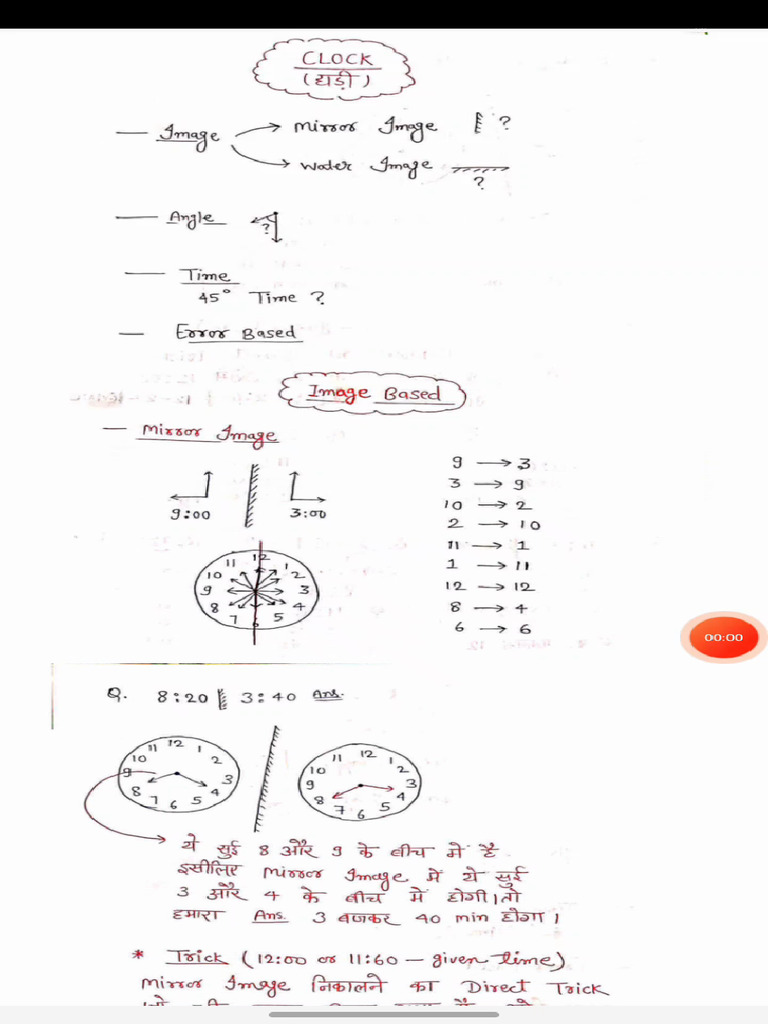 CLOCK
(घड़ी)
— Image → Mirror Image ?
→ Water Image ?
— Angle ?
— Time
45° Time ?
— Error Based
Image Based
— Mirror Image
9:00 3:00
9 → 3
3 → 9
10 → 2
2 → 10
11 → 1
1 → 11
12 → 12
8 → 4
6 → 6
12 1 2 3 4 5 6 7 8 9 10 11
00:00
Q. 8:20 3:40 Ans.
12 1 2 3 4 5 6 7 8 9 10 11
12 1 2 3 4 5 6 7 8 9 10 11
ये सुई 8 और 9 के बीच में है
इसीलिए Mirror Image में ये सुई
3 और 4 के बीच में होगी। तो
हमारा Ans. 3 बजकर 40 min होगा।
* Trick (12:00 or 11:60 — given time)
Mirror Image निकालने का Direct Trick